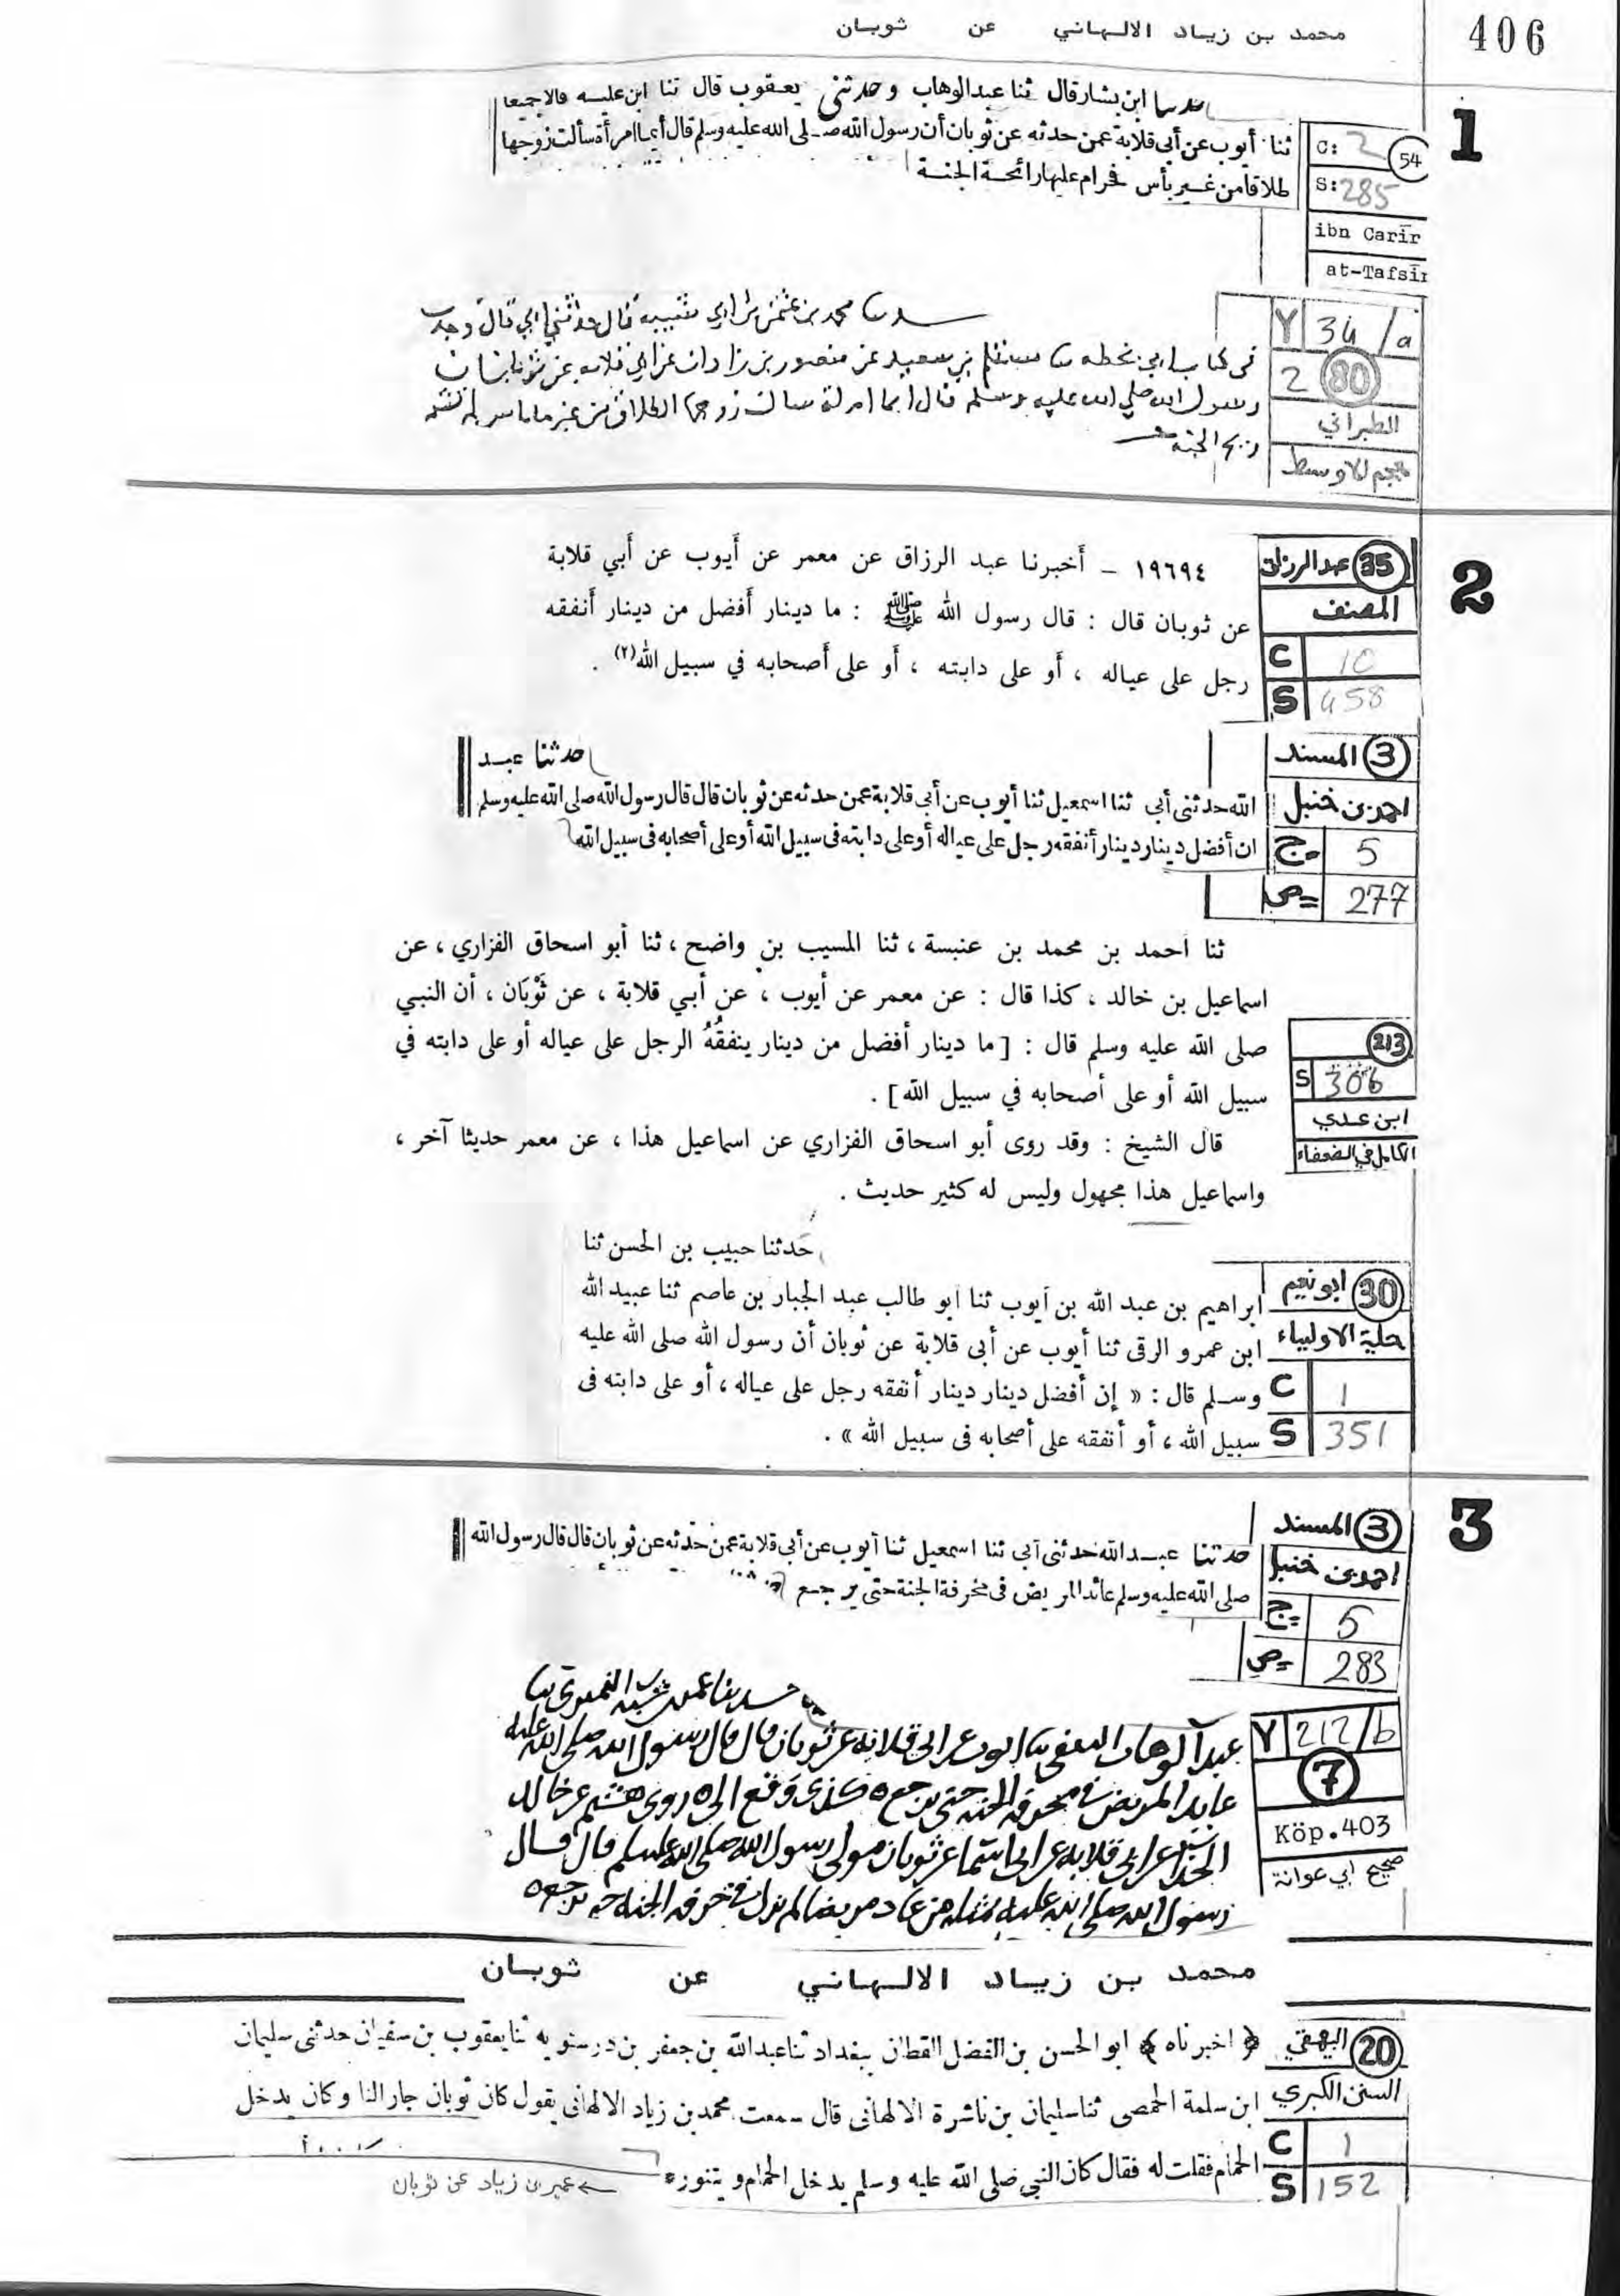 406
محمد بن زياد الالهاني عن ثوبان
1
حدثنا ابن بشار قال ثنا عبد الوهاب وحدثنى يعقوب قال ثنا ابن علية قالا جميعا
ثنا أيوب عن أبى قلابة عمن حدثه عن ثوبان أن رسول الله صلى الله عليه وسلم قال أيما امرأة سألت زوجها
طلاقا من غير بأس فحرام عليها رائحة الجنة
54
C: 2
S: 285
ibn Carīr
at-Tafsīr
حدثنا محمد بن عثمن بن ابي شيبه قال حدثني ابي قال وجدت
في كتاب ابي بخطه بن سعيد عن منصور بن زاذان عن ابي قلابه عن ثوبان
رسول الله صلي الله عليه وسلم قال ايما امراة سالت زوجها الطلاق من غير ما باس لم تشم
ريح الجنة
Y 34/a
2 80
الطبراني
معجم الاوسط
2
١٩٦٩٤ – أخبرنا عبد الرزاق عن معمر عن أيوب عن أبي قلابة
عن ثوبان قال : قال رسول الله ﷺ : ما دينار أفضل من دينار أنفقه
رجل على عياله ، أو على دابته ، أو على أصحابه في سبيل الله(٢) .
35 عبد الرزاق
المصنف
C 10
S 458
حدثنا عبد
الله حدثنى أبى ثنا اسمعيل ثنا أيوب عن أبى قلابة عمن حدثه عن ثوبان قال قال رسول الله صلى الله عليه وسلم
ان أفضل دينار دينار أنفقه رجل على عياله أو على دابته فى سبيل الله أو على أصحابه فى سبيل الله
3 المسند
احمد بن حنبل
ج 5
ص 277
ثنا أحمد بن محمد بن عنبسة ، ثنا المسيب بن واضح ، ثنا أبو اسحاق الفزاري ، عن
اسماعيل بن خالد ، كذا قال : عن معمر عن أيوب ، عن أبي قلابة ، عن ثَوْبَان ، أن النبي
صلى الله عليه وسلم قال : [ ما دينار أفضل من دينار ينفقُهُ الرجل على عياله أو على دابته في
سبيل الله أو على أصحابه في سبيل الله ] .
قال الشيخ : وقد روى أبو اسحاق الفزاري عن اسماعيل هذا ، عن معمر حديثا آخر ،
واسماعيل هذا مجهول وليس له كثير حديث .
213
S 306
ابن عدي
الكامل في الضعفاء
حدثنا حبيب بن الحسن ثنا
ابراهيم بن عبد الله بن أيوب ثنا أبو طالب عبد الجبار بن عاصم ثنا عبيد الله
ابن عمرو الرقى ثنا أيوب عن أبى قلابة عن ثوبان أن رسول الله صلى الله عليه
وسلم قال : « إن أفضل دينار دينار أنفقه رجل على عياله ، أو على دابته فى
سبيل الله ، أو أنفقه على أصحابه فى سبيل الله » .
30 ابو نعيم
حلية الاولياء
C 1
S 351
3
حدثنا عبد الله حدثنى أبى ثنا اسمعيل ثنا أيوب عن أبى قلابة عمن حدثه عن ثوبان قال قال رسول الله
صلى الله عليه وسلم عائد المريض فى مخرفة الجنة حتى يرجع
3 المسند
احمد بن حنبل
ج 5
ص 283
حدثنا عمر بن شبه النميري ثنا
عبد الوهاب الثقفي ثنا ايوب عن ابي قلابه عن ثوبان قال قال رسول الله صلى الله عليه
عايد المريض في مخرفه الجنه حتى يرجع كذى وقع الي روى هشيم عن خالد
الحذا عن ابي قلابه عن ابي اسما عن ثوبان مولى رسول الله صلى الله عليه وسلم قال قال
رسول الله صلى الله عليه من عاد مريضا لم يزل في خرفه الجنه حتى يرجع
Y 212/b
7
Köp.403
صحيح ابي عوانة
محمد بن زياد الالهاني عن ثوبان
﴿ اخبرناه ﴾ ابو الحسن بن الفضل القطان ببغداد ثنا عبد الله بن جعفر بن درستويه ثنا يعقوب بن سفيان حدثنى سليمان
ابن سلمة الحمصى ثنا سليمان بن ناشرة الالهانى قال سمعت محمد بن زياد الالهانى يقول كان ثوبان جارا لنا وكان يدخل
الحمام فقلت له فقال كان النبى صلى الله عليه وسلم يدخل الحمام ويتنور
20 البيهقي
السنن الكبري
C 1
S 152
← عمير بن زياد عن ثوبان